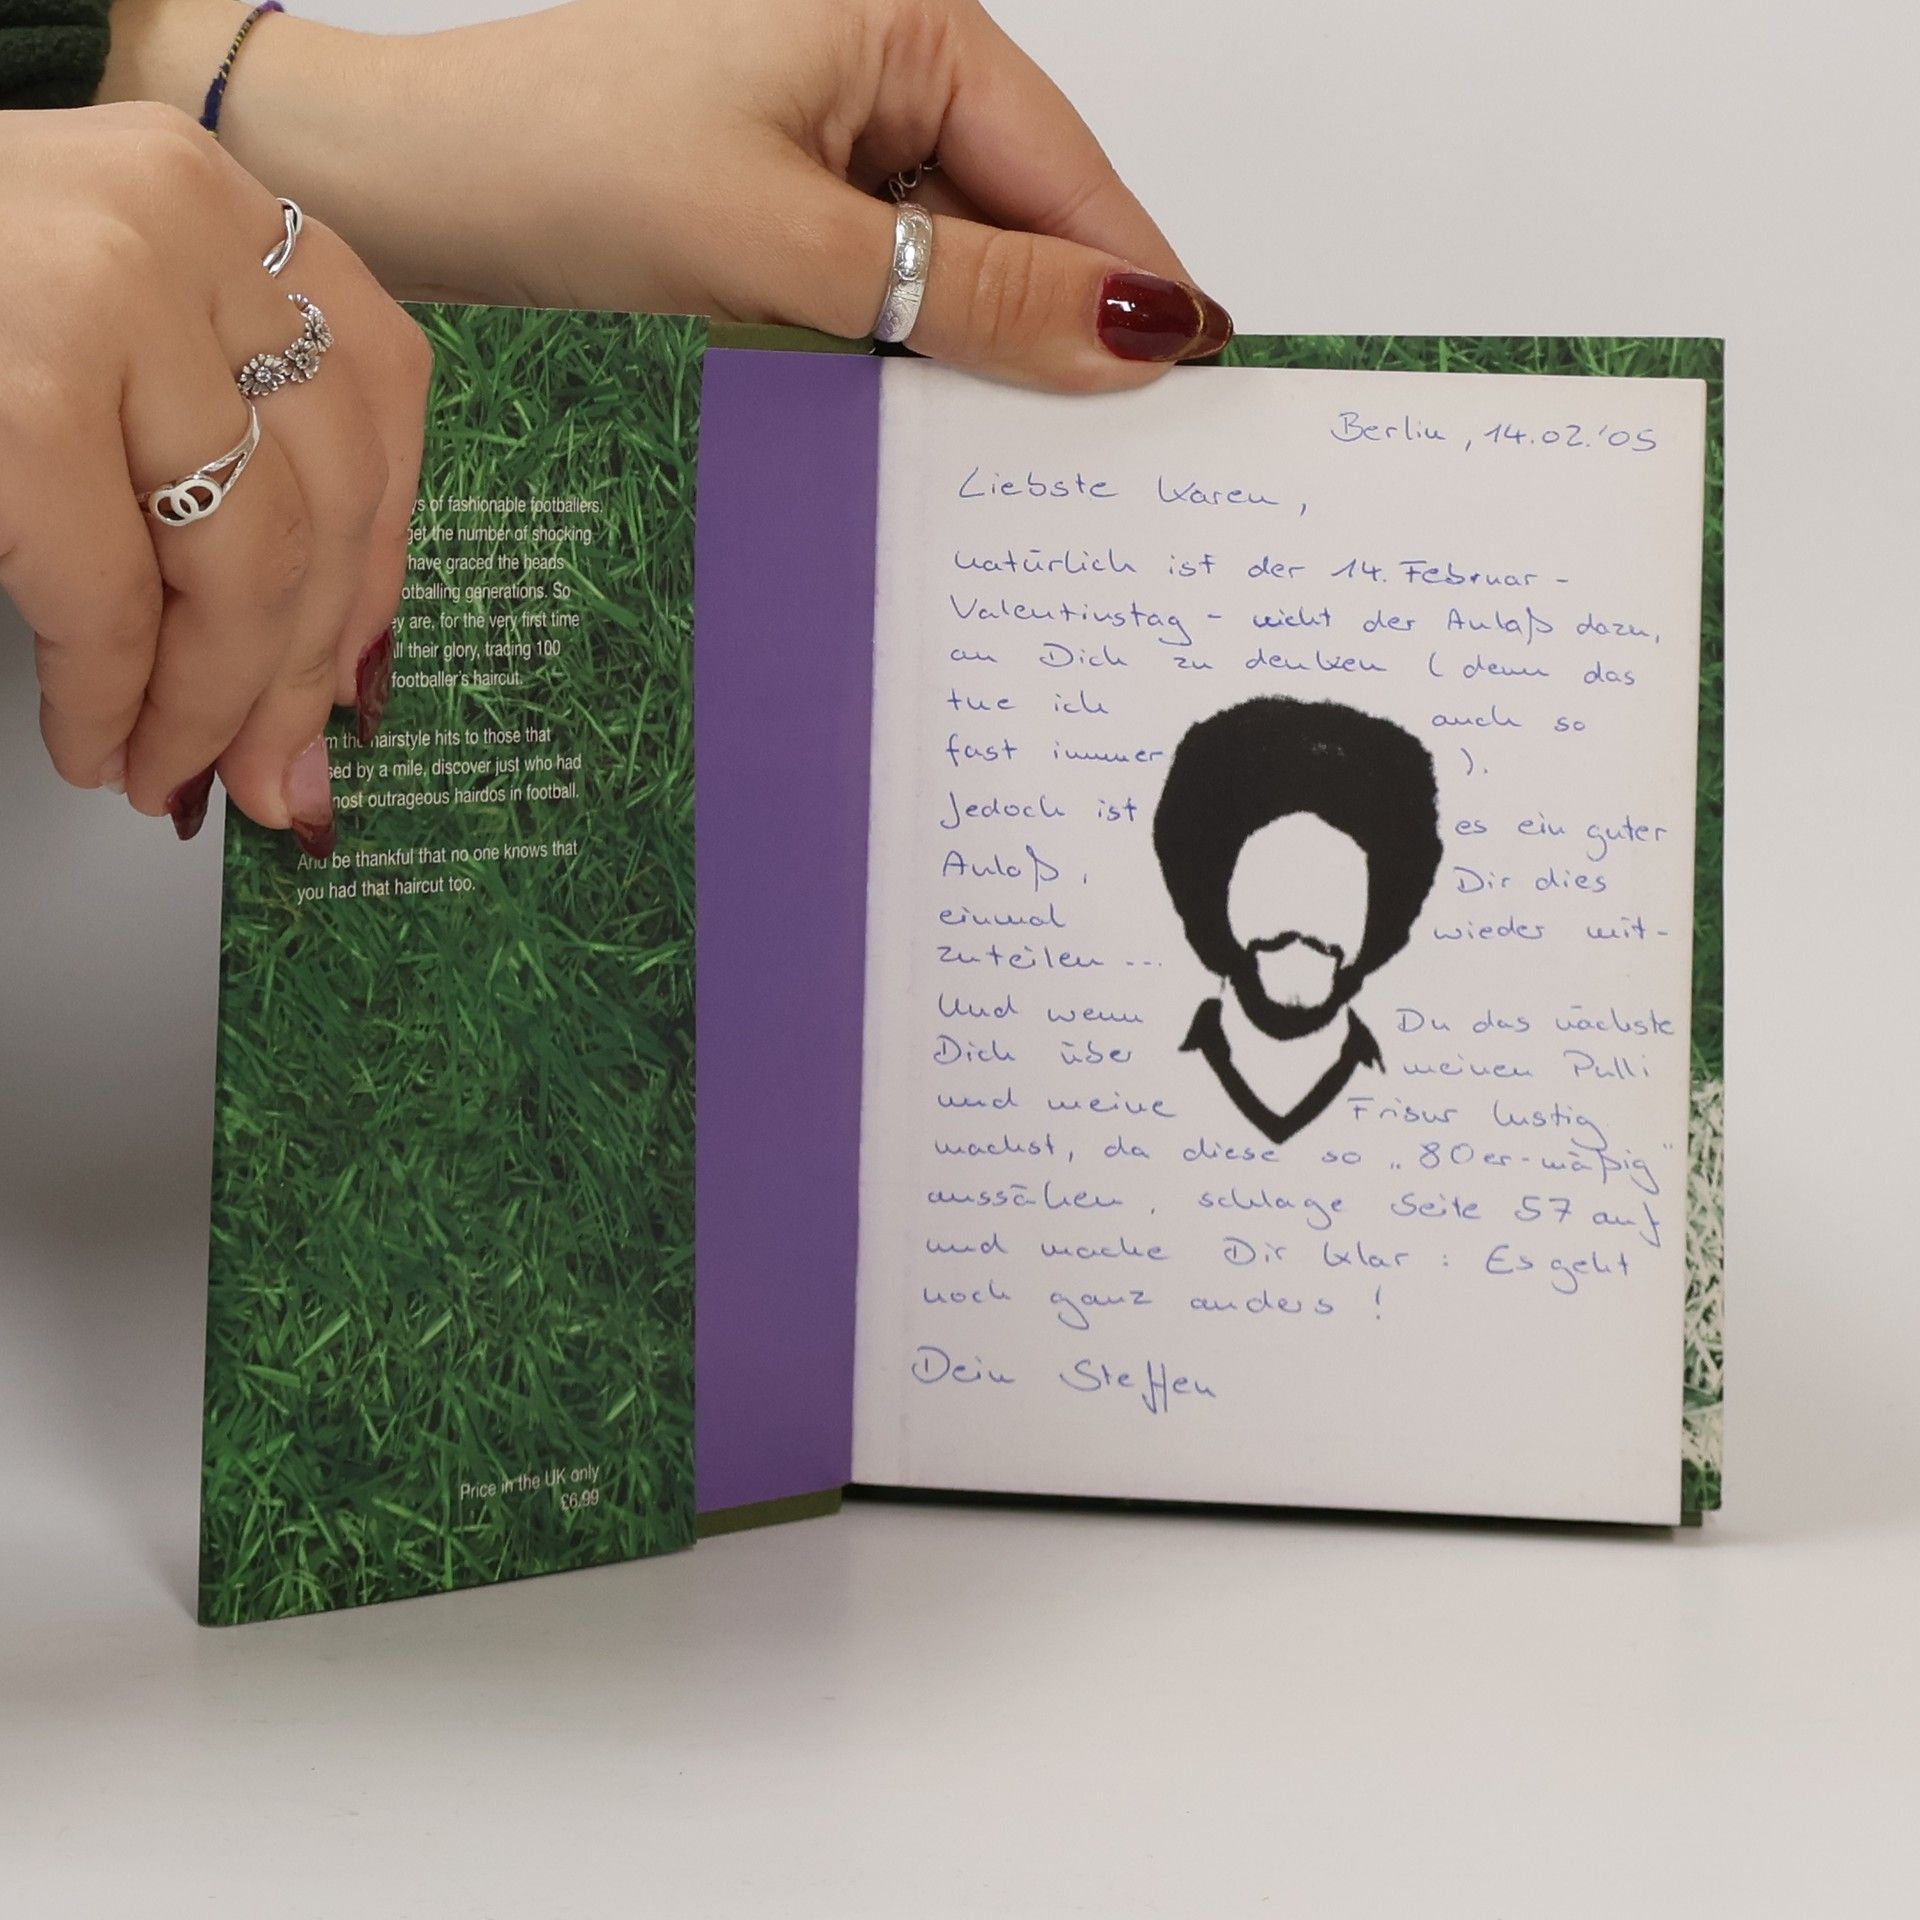 s of fashionable footballers.
get the number of shocking
have graced the heads
otballing generations. So
ey are, for the very first time
ll their glory, trading 100
footballer's haircut.
m the hairstyle hits to those that
sed by a mile, discover just who had
most outrageous hairdos in football.
And be thankful that no one knows that
you had that haircut too.
Price in the UK only
£6.99
Berlin, 14.02.'05
Liebste Karen,
natürlich ist der 14. Februar -
Valentinstag - nicht der Anlaß dazu,
an Dich zu denken (denn das
tue ich auch so
fast immer ).
Jedoch ist es ein guter
Anlaß, Dir dies
einmal wieder mit-
zuteilen ...
Und wenn Du das nächste
Dich über meinen Pulli
und meine Frisur lustig
machst, da diese so „80er-mäßig"
aussähen, schlage Seite 57 auf
und mache Dir klar: Es geht
noch ganz anders!
Dein Steffen